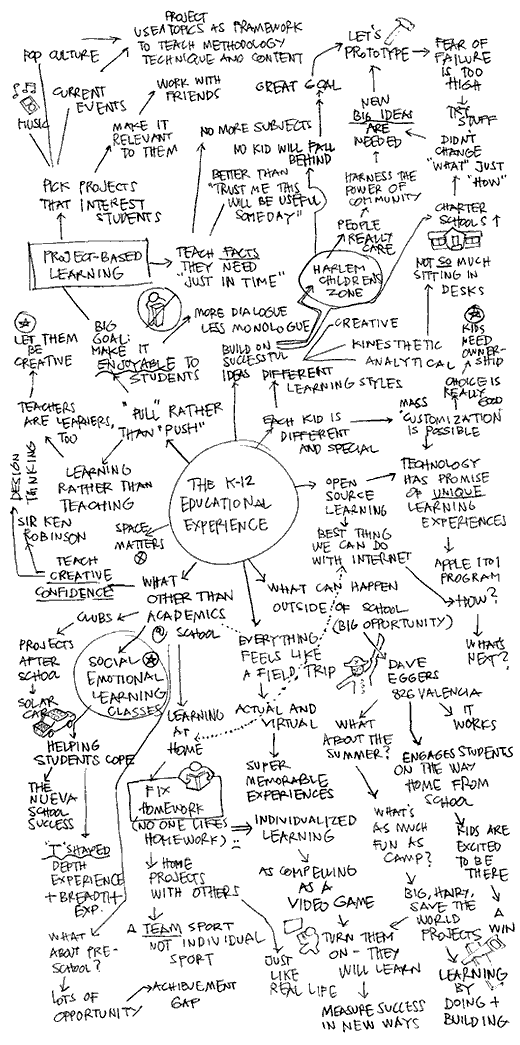 PROJECT
USE TOPICS AS FRAMEWORK
TO TEACH METHODOLOGY
TECHNIQUE AND CONTENT
POP CULTURE
CURRENT
EVENTS
MUSIC
WORK WITH
FRIENDS
MAKE IT
RELEVANT
TO THEM
PICK PROJECTS
THAT INTEREST
STUDENTS
PROJECT-BASED
LEARNING
NO MORE SUBJECTS
NO KID WILL FALL
BEHIND
BETTER THAN
"TRUST ME THIS
WILL BE USEFUL
SOMEDAY"
TEACH FACTS
THEY NEED
"JUST IN TIME"
GREAT GOAL
LET'S
PROTOTYPE
FEAR OF
FAILURE
IS TOO
HIGH
TRY
STUFF
DIDN'T
CHANGE
"WHAT" JUST
"HOW"
NEW
BIG IDEAS
ARE
NEEDED
HARNESS THE
POWER OF
COMMUNITY
PEOPLE
REALLY
CARE
HARLEM
CHILDRENS
ZONE
CHARTER
SCHOOLS
NOT SO MUCH
SITTING IN
DESKS
BIG
GOAL:
MAKE IT
ENJOYABLE TO
STUDENTS
MORE DIALOGUE
LESS MONOLOGUE
BUILD ON
SUCCESSFUL
IDEAS
CREATIVE
KINESTHETIC
ANALYTICAL
DIFFERENT
LEARNING STYLES
KIDS
NEED
OWNER-
SHIP
CHOICE IS
REALLY
GOOD
LET THEM
BE
CREATIVE
TEACHERS
ARE LEARNERS,
TOO
"PULL" RATHER
THAN "PUSH"
EACH KID IS
DIFFERENT
AND SPECIAL
MASS
"CUSTOMIZATION"
IS POSSIBLE
DESIGN
THINKING
LEARNING
RATHER THAN
TEACHING
SIR KEN
ROBINSON
TEACH
CREATIVE
CONFIDENCE
THE K-12
EDUCATIONAL
EXPERIENCE
SPACE
MATTERS
OPEN
SOURCE
LEARNING
TECHNOLOGY
HAS PROMISE
OF UNIQUE
LEARNING
EXPERIENCES
BEST THING
WE CAN DO
WITH INTERNET
APPLE 1 TO 1
PROGRAM
HOW?
WHAT'S
NEXT?
WHAT
OTHER THAN
ACADEMICS
@ SCHOOL
CLUBS
PROJECTS
AFTER
SCHOOL
SOLAR
CAR
SOCIAL
EMOTIONAL
LEARNING
CLASSES
HELPING
STUDENTS COPE
THE
NUEVA
SCHOOL
SUCCESS
"T" SHAPED
DEPTH
EXPERIENCE
+ BREADTH
EXP.
WHAT
ABOUT PRE-
SCHOOL?
LOTS OF
OPPORTUNITY
ACHIEVEMENT
GAP
LEARNING
AT
HOME
FIX
HOMEWORK
(NO ONE LIKES
HOMEWORK)
HOME
PROJECTS
WITH OTHERS
A TEAM SPORT
NOT INDIVIDUAL
SPORT
WHAT CAN HAPPEN
OUTSIDE OF SCHOOL
(BIG OPPORTUNITY)
EVERYTHING
FEELS LIKE
A FIELD TRIP
ACTUAL AND
VIRTUAL
SUPER
MEMORABLE
EXPERIENCES
INDIVIDUALIZED
LEARNING
AS COMPELLING
AS A
VIDEO GAME
TURN THEM
ON - THEY
WILL LEARN
JUST
LIKE
REAL LIFE
MEASURE SUCCESS
IN NEW WAYS
DAVE
EGGERS
826 VALENCIA
IT
WORKS
WHAT
ABOUT THE
SUMMER?
WHAT'S
AS MUCH
FUN AS
CAMP?
BIG, HAIRY,
SAVE THE
WORLD
PROJECTS
ENGAGES STUDENTS
ON THE WAY
HOME FROM
SCHOOL
KIDS ARE
EXCITED
TO BE
THERE
A
WIN
LEARNING
BY
DOING +
BUILDING